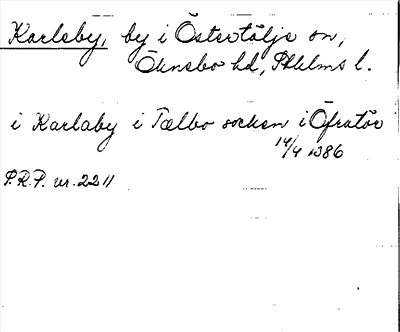 Karlsby, by i Östertälje sn,
Öknebo hd, Sthlms l.
i Karlaby i Tælbo socken i Öfratör
14/4 1386
S.R.P. nr. 2211